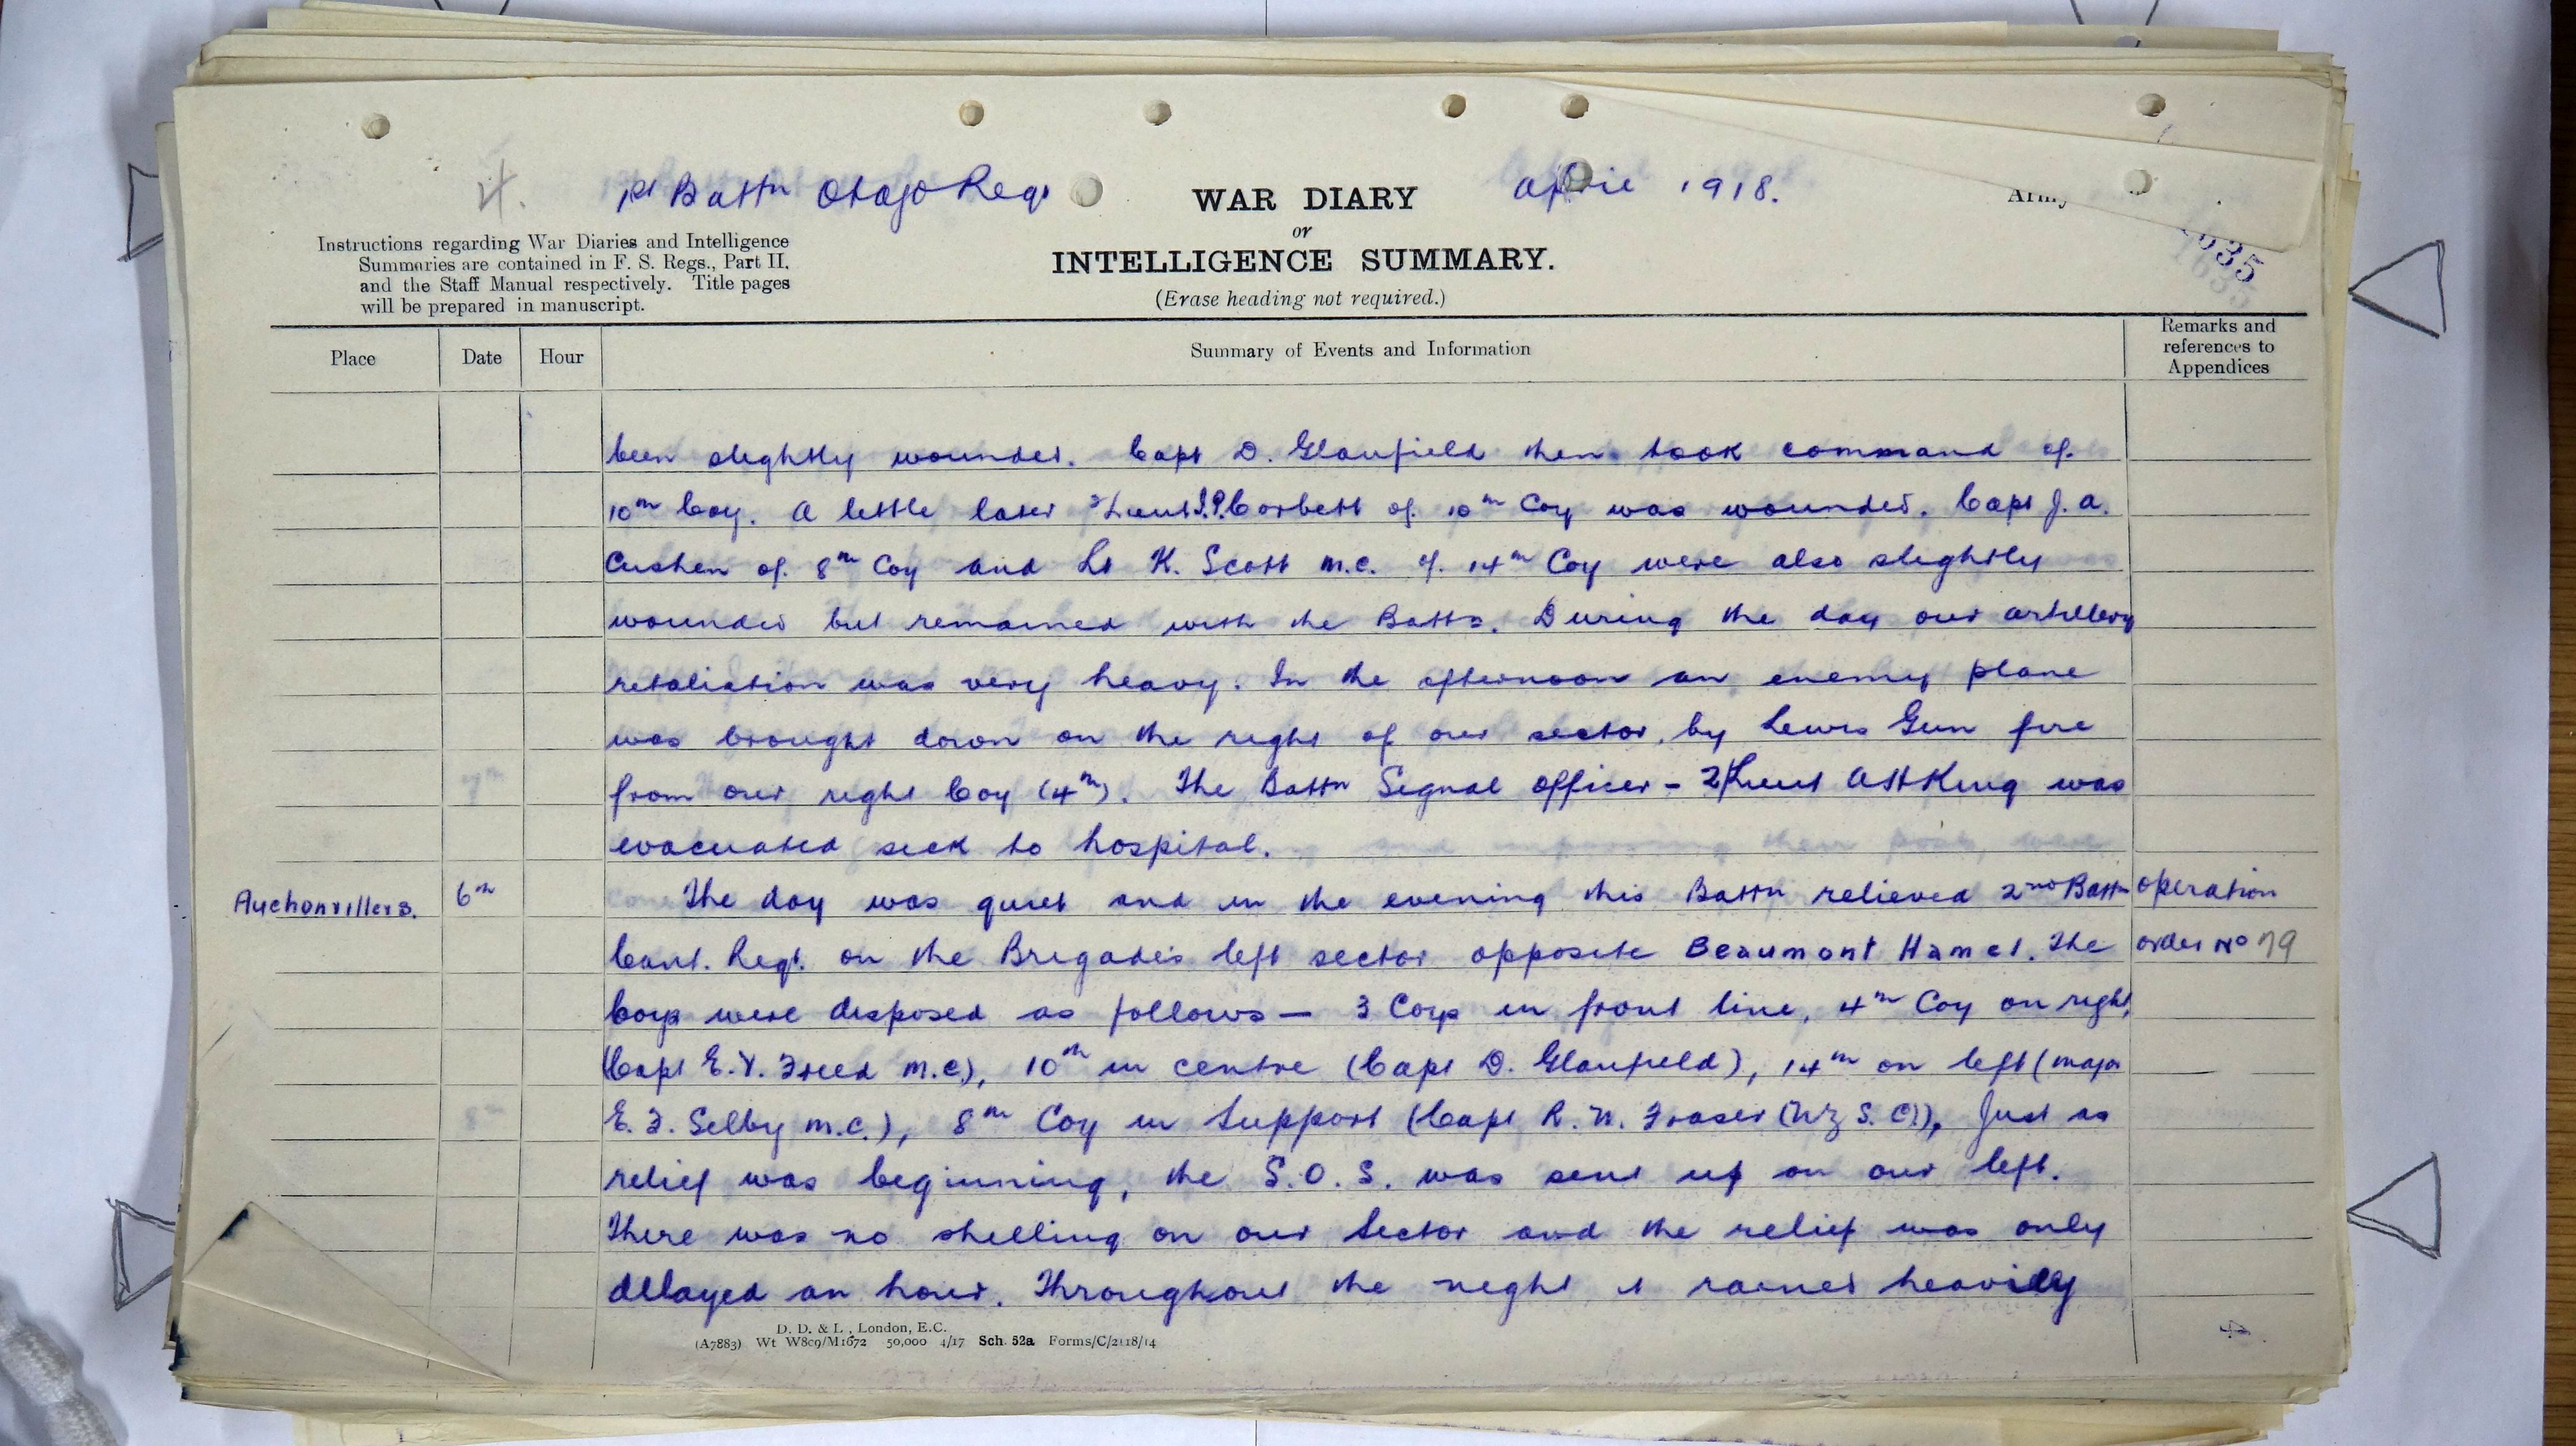 4. 1st Battn Otago Regt WAR DIARY April 1918. Army
or
INTELLIGENCE SUMMARY.
(Erase heading not required.)
Instructions regarding War Diaries and Intelligence
Summaries are contained in F. S. Regs., Part II.
and the Staff Manual respectively. Title pages
will be prepared in manuscript.
1635
Place Date Hour Summary of Events and Information Remarks and
references to
Appendices
been slightly wounded. Capt D. Glanfield then took command of
10th Coy. A little later 2/Lieut J.P. Corbett of 10th Coy was wounded. Capt J. A.
Cushen of 8th Coy and Lt K. Scott M.C. of 14th Coy were also slightly
wounded but remained with the Battn. During the day our artillery
retaliation was very heavy. In the afternoon an enemy plane
was brought down on the right of our sector, by Lewis Gun fire
from our right Coy (4th). The Battn Signal Officer - 2/Lieut A H King was
evacuated sick to hospital.
Auchonvillers. 6th The day was quiet and in the evening this Battn relieved 2nd Battn operation
Cant. Regt. on the Brigade's left sector opposite Beaumont Hamel. The order No 79
Coys were disposed as follows — 3 Coys in front line, 4th Coy on right,
(Capt E.V. Freed M.C.), 10th in centre (Capt D. Glanfield), 14th on left (Major
E. F. Selby M.C.), 8th Coy in Support (Capt R. N. Fraser (NZ S.C.)). Just as
relief was beginning, the S.O.S. was sent up on our left.
There was no shelling on our Sector and the relief was only
delayed an hour. Throughout the night it rained heavily
D. D. & L., London, E.C.
(A7883) Wt W809/M1672 50,000 4/17 Sch. 52a Forms/C/2118/14
4